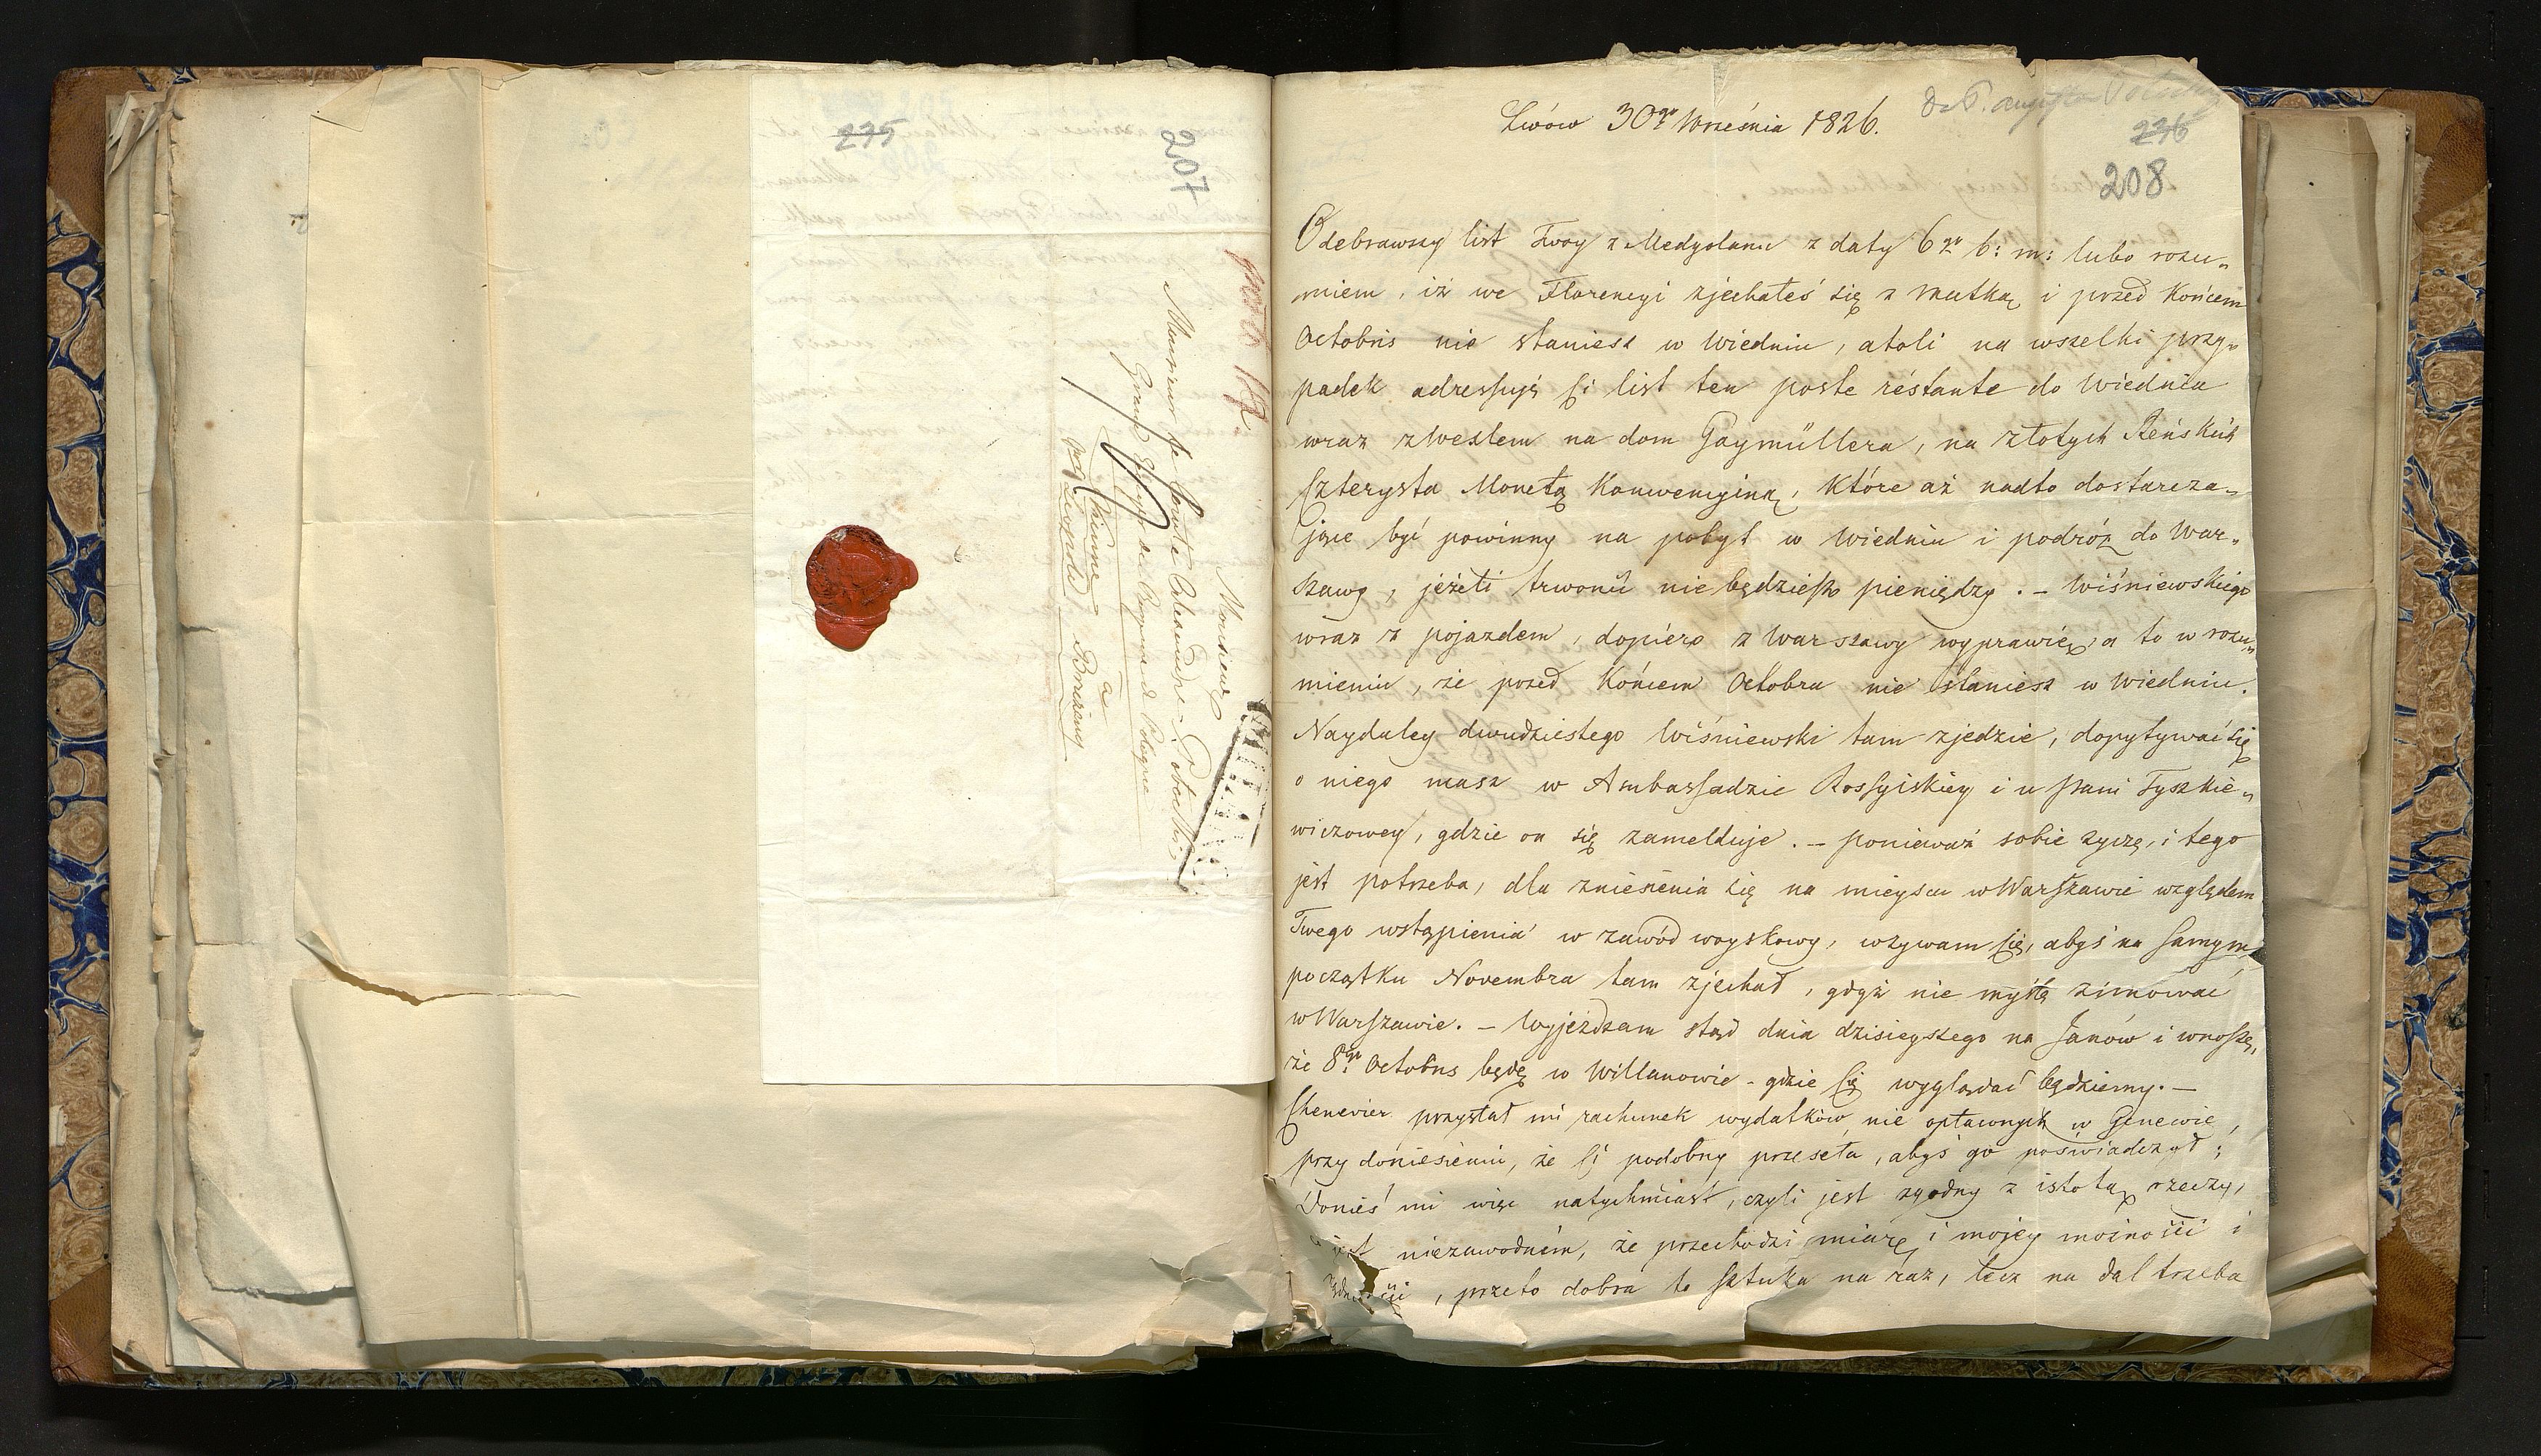 275
207
Monsieur
Monsieur le Comte Alexandre Potocki
Grand Ecuyer du Royaume de Pologne
a
Vienne
Leopold Brzezany
Lwów 30go Września 1826.
do P. Augusta Potockiego
276
208
Odebrawszy list Twoy z Medyolanu z daty 6go b: m: lubo rozu„
miem, iż we Florencyi zjechałeś się z Matką i przed Końcem
Octobris nie staniesz w Wiedniu, atoli na wszelki przy„
padek adressuję Ci list ten poste réstante do Wiednia
wraz z Wexlem na dom Gaymüllera, na złotych Reńskich
Czterysta Monetą Konwencyiną, które aż nadto dostarcza„
jące być powinny na pobyt w Wiedniu i podróż do War„
szawy, jeżeli trwonić nie będziesz pieniędzy. – Wiśniewskiego
wraz z pojazdem, dopiero z Warszawy wyprawię, a to w rozu„
mieniu, że przed Końcem Octobra nie staniesz w Wiedniu.
Naydaley dwudziestego Wiśniewski tam zjedzie, dopytywać się
o niego masz w Ambassadzie Rossyiskiey i u Pani Tyszkie„
wiczowey, gdzie on się zamelduje. – ponieważ sobie życzę, i tego
jest potrzeba, dla zniesienia się na mieyscu w Warszawie względem
Twego wstąpienia w zawód woyskowy, wzywam Cię, abyś na samym
początku Novembra tam zjechał, gdyż nie myślę zimować
w Warszawie. – Wyjeżdzam stąd dnia dzisieyszego na Janów i wnoszę,
że 8go Octobris będę w Willanowie – gdzie Cię wyglądać będziemy. –
Chenevier przysłał mi rachunek wydatków nie opłaconych w Genewie,
przy doniesieniu, że Ci podobny przeseła, abyś go poświadczył;
Donieś mi więc natychmiast, czyli jest zgodny z istotą rzeczy,
jest niezawodném, że przechodzi miarę i mojey możności i
, przeto dobra to sztuka na raz, lecz na dal trzeba